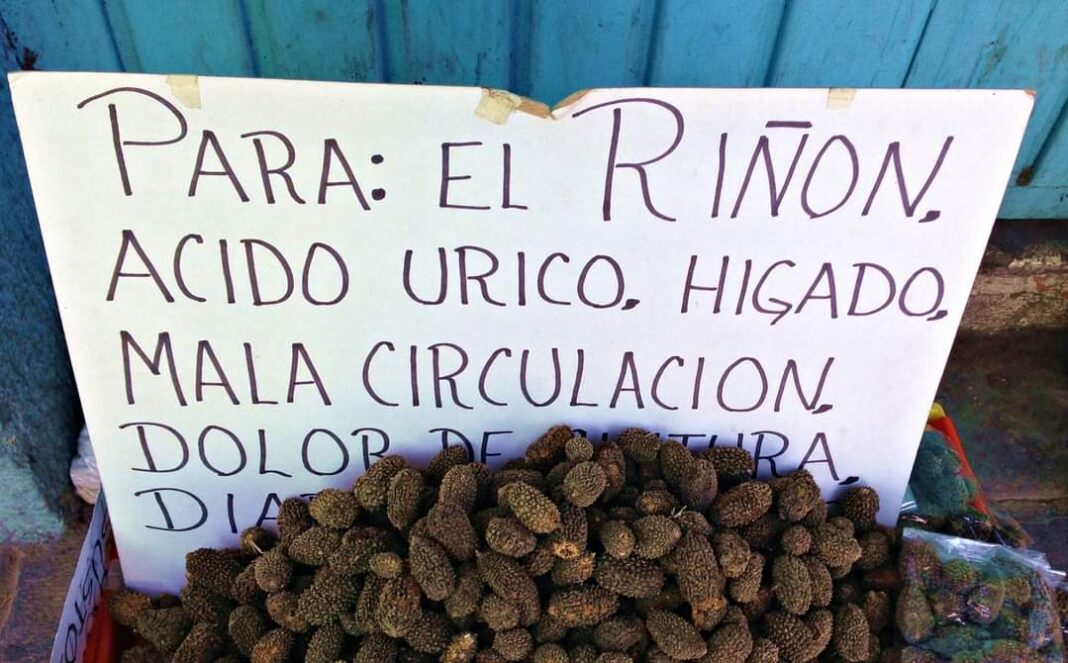 PARA: EL RIÑON,
ACIDO URICO, HIGADO,
MALA CIRCULACION,
DOLOR DE